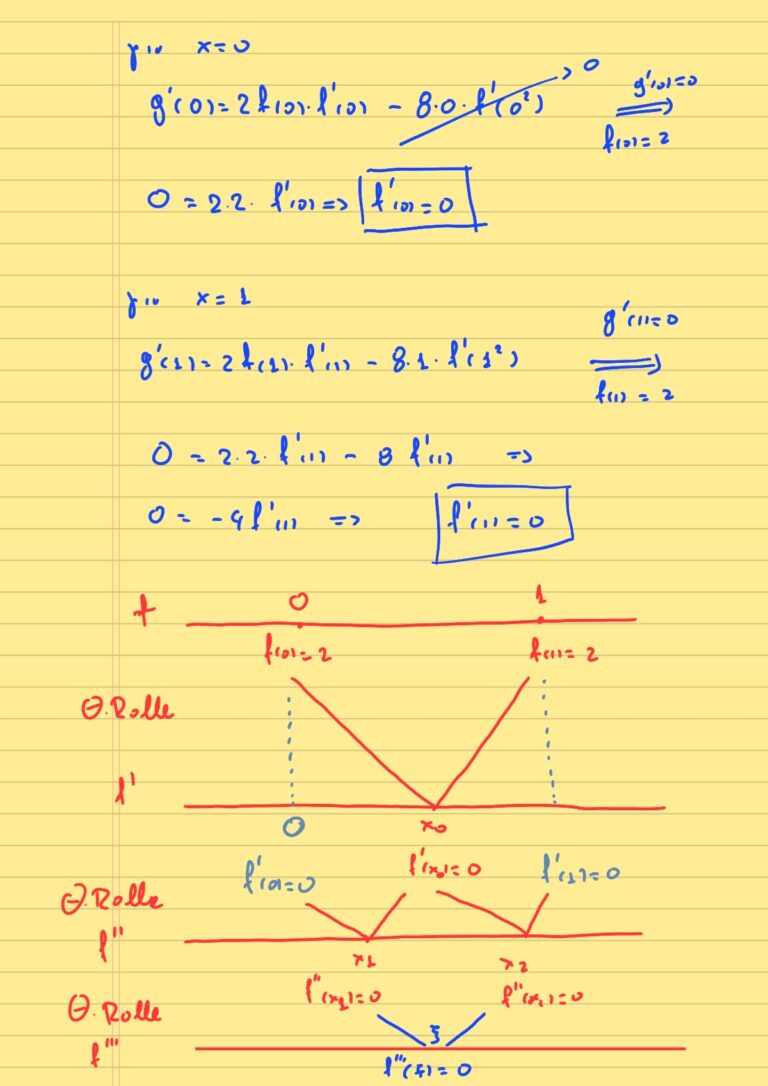 για x=0
g'(0)=2f(0)·f'(0) - 8·0·f'(0²) → 0 g'(0)=0 ⟹ f(0)=2
0 = 2·2· f'(0) => f'(0)=0
για x=1
g'(1)=2f(1)·f'(1) - 8·1·f'(1²) g'(1)=0 ⟹ f(1)=2
0 = 2·2·f'(1) - 8 f'(1) =>
0 = -4f'(1) => f'(1)=0
f 0 1
f(0)=2 f(1)=2
Θ.Rolle
f'
0 x₀
f'(0)=0 f'(x₀)=0 f'(1)=0
Θ.Rolle
f''
x₁ x₂
f''(x₁)=0 f''(x₂)=0
Θ.Rolle
f''' ξ
f'''(ξ)=0